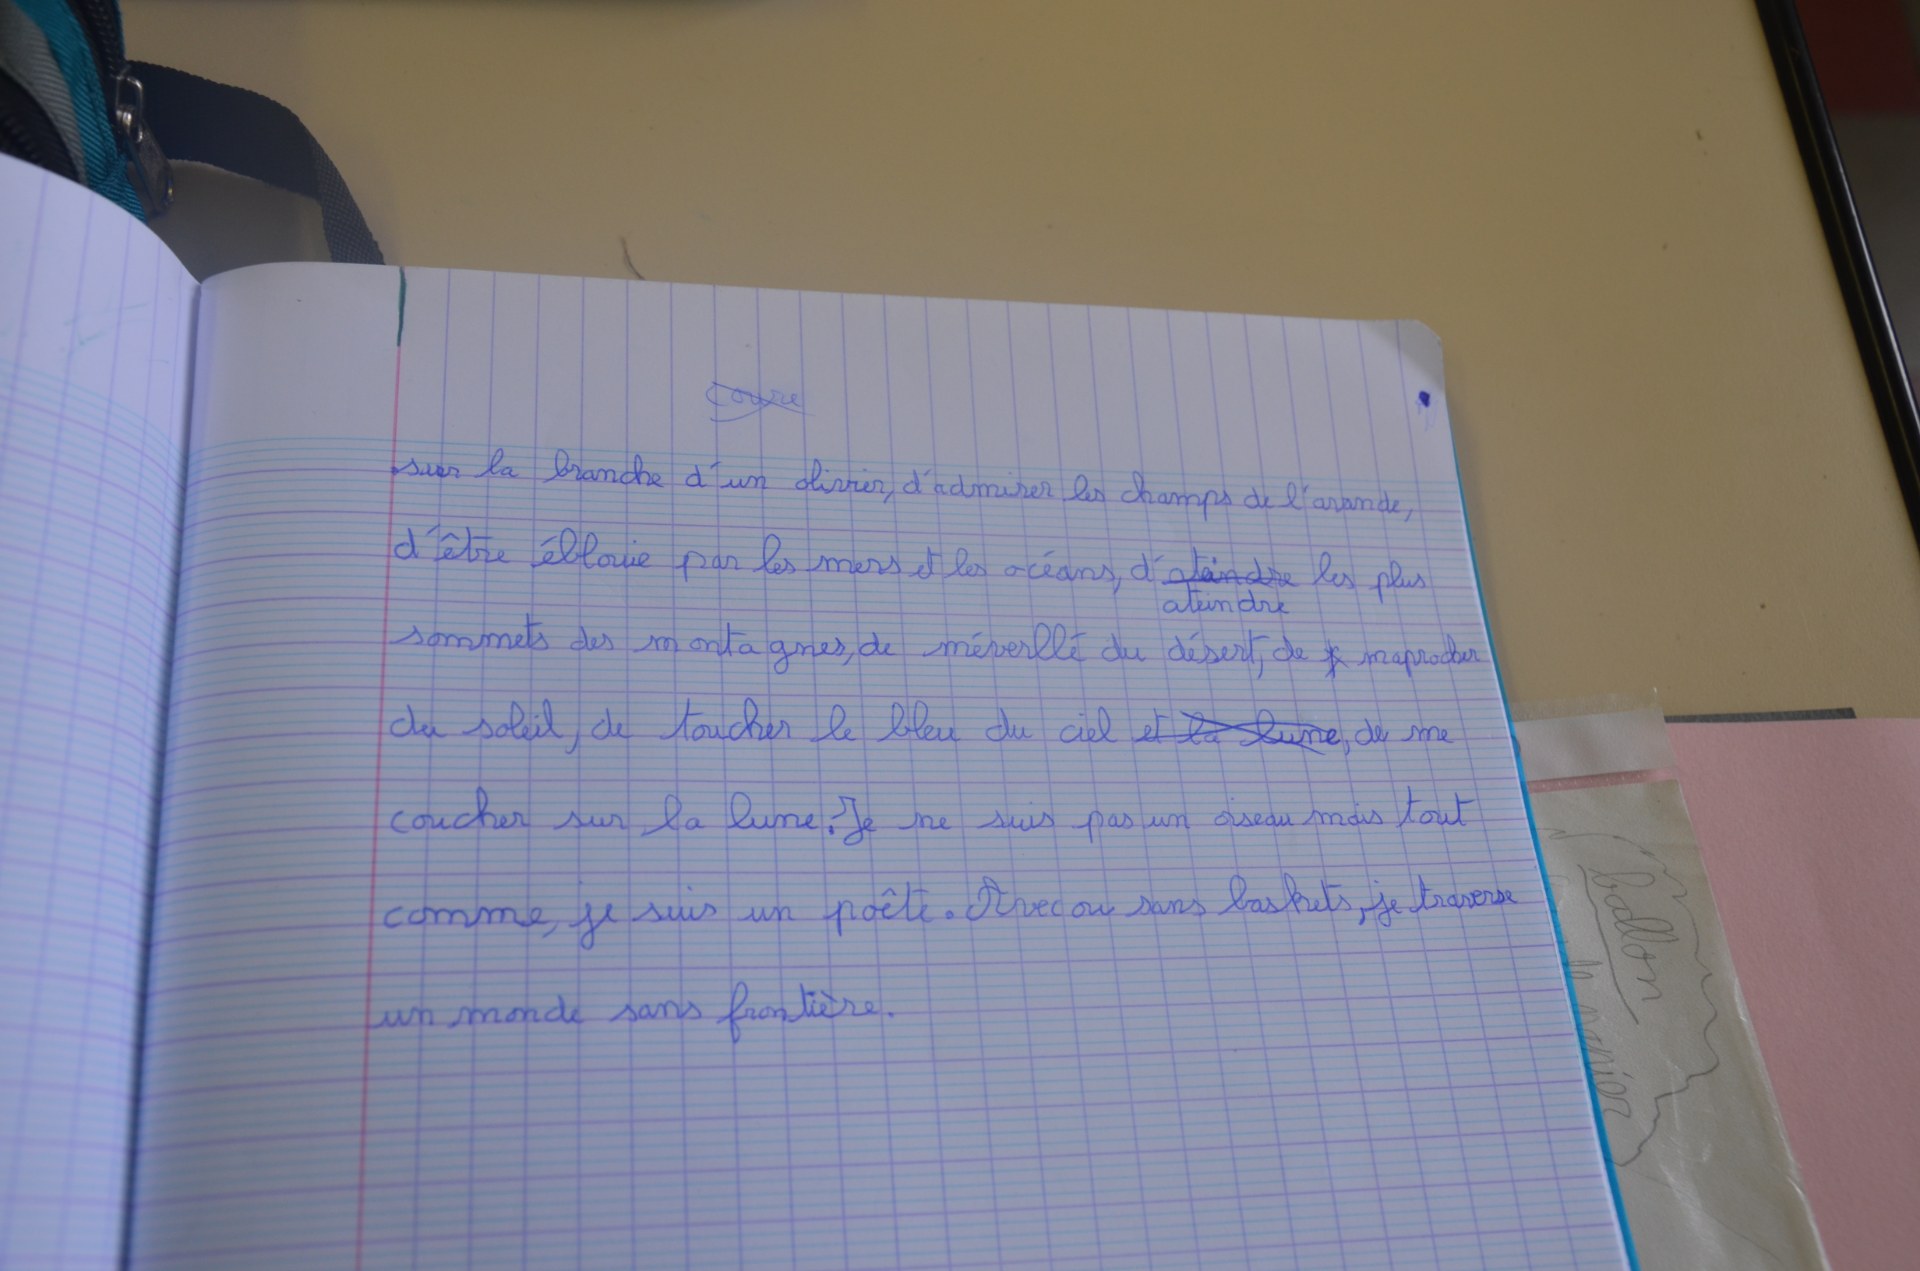 sur la branche d'un olivier, d'admirer les champs de l'avande,
d'être éblouie par les mers et les océans, d'ateindre les plus
sommets des montagnes, de mérveillé du désert, de maprocher
du soleil, de toucher le bleu du ciel et la lune, de me
coucher sur la lune. Je ne suis pas un oiseau mais tout
comme, je suis un poête. Avec ou sans baskets, je traverse
un monde sans frontière.
ballon